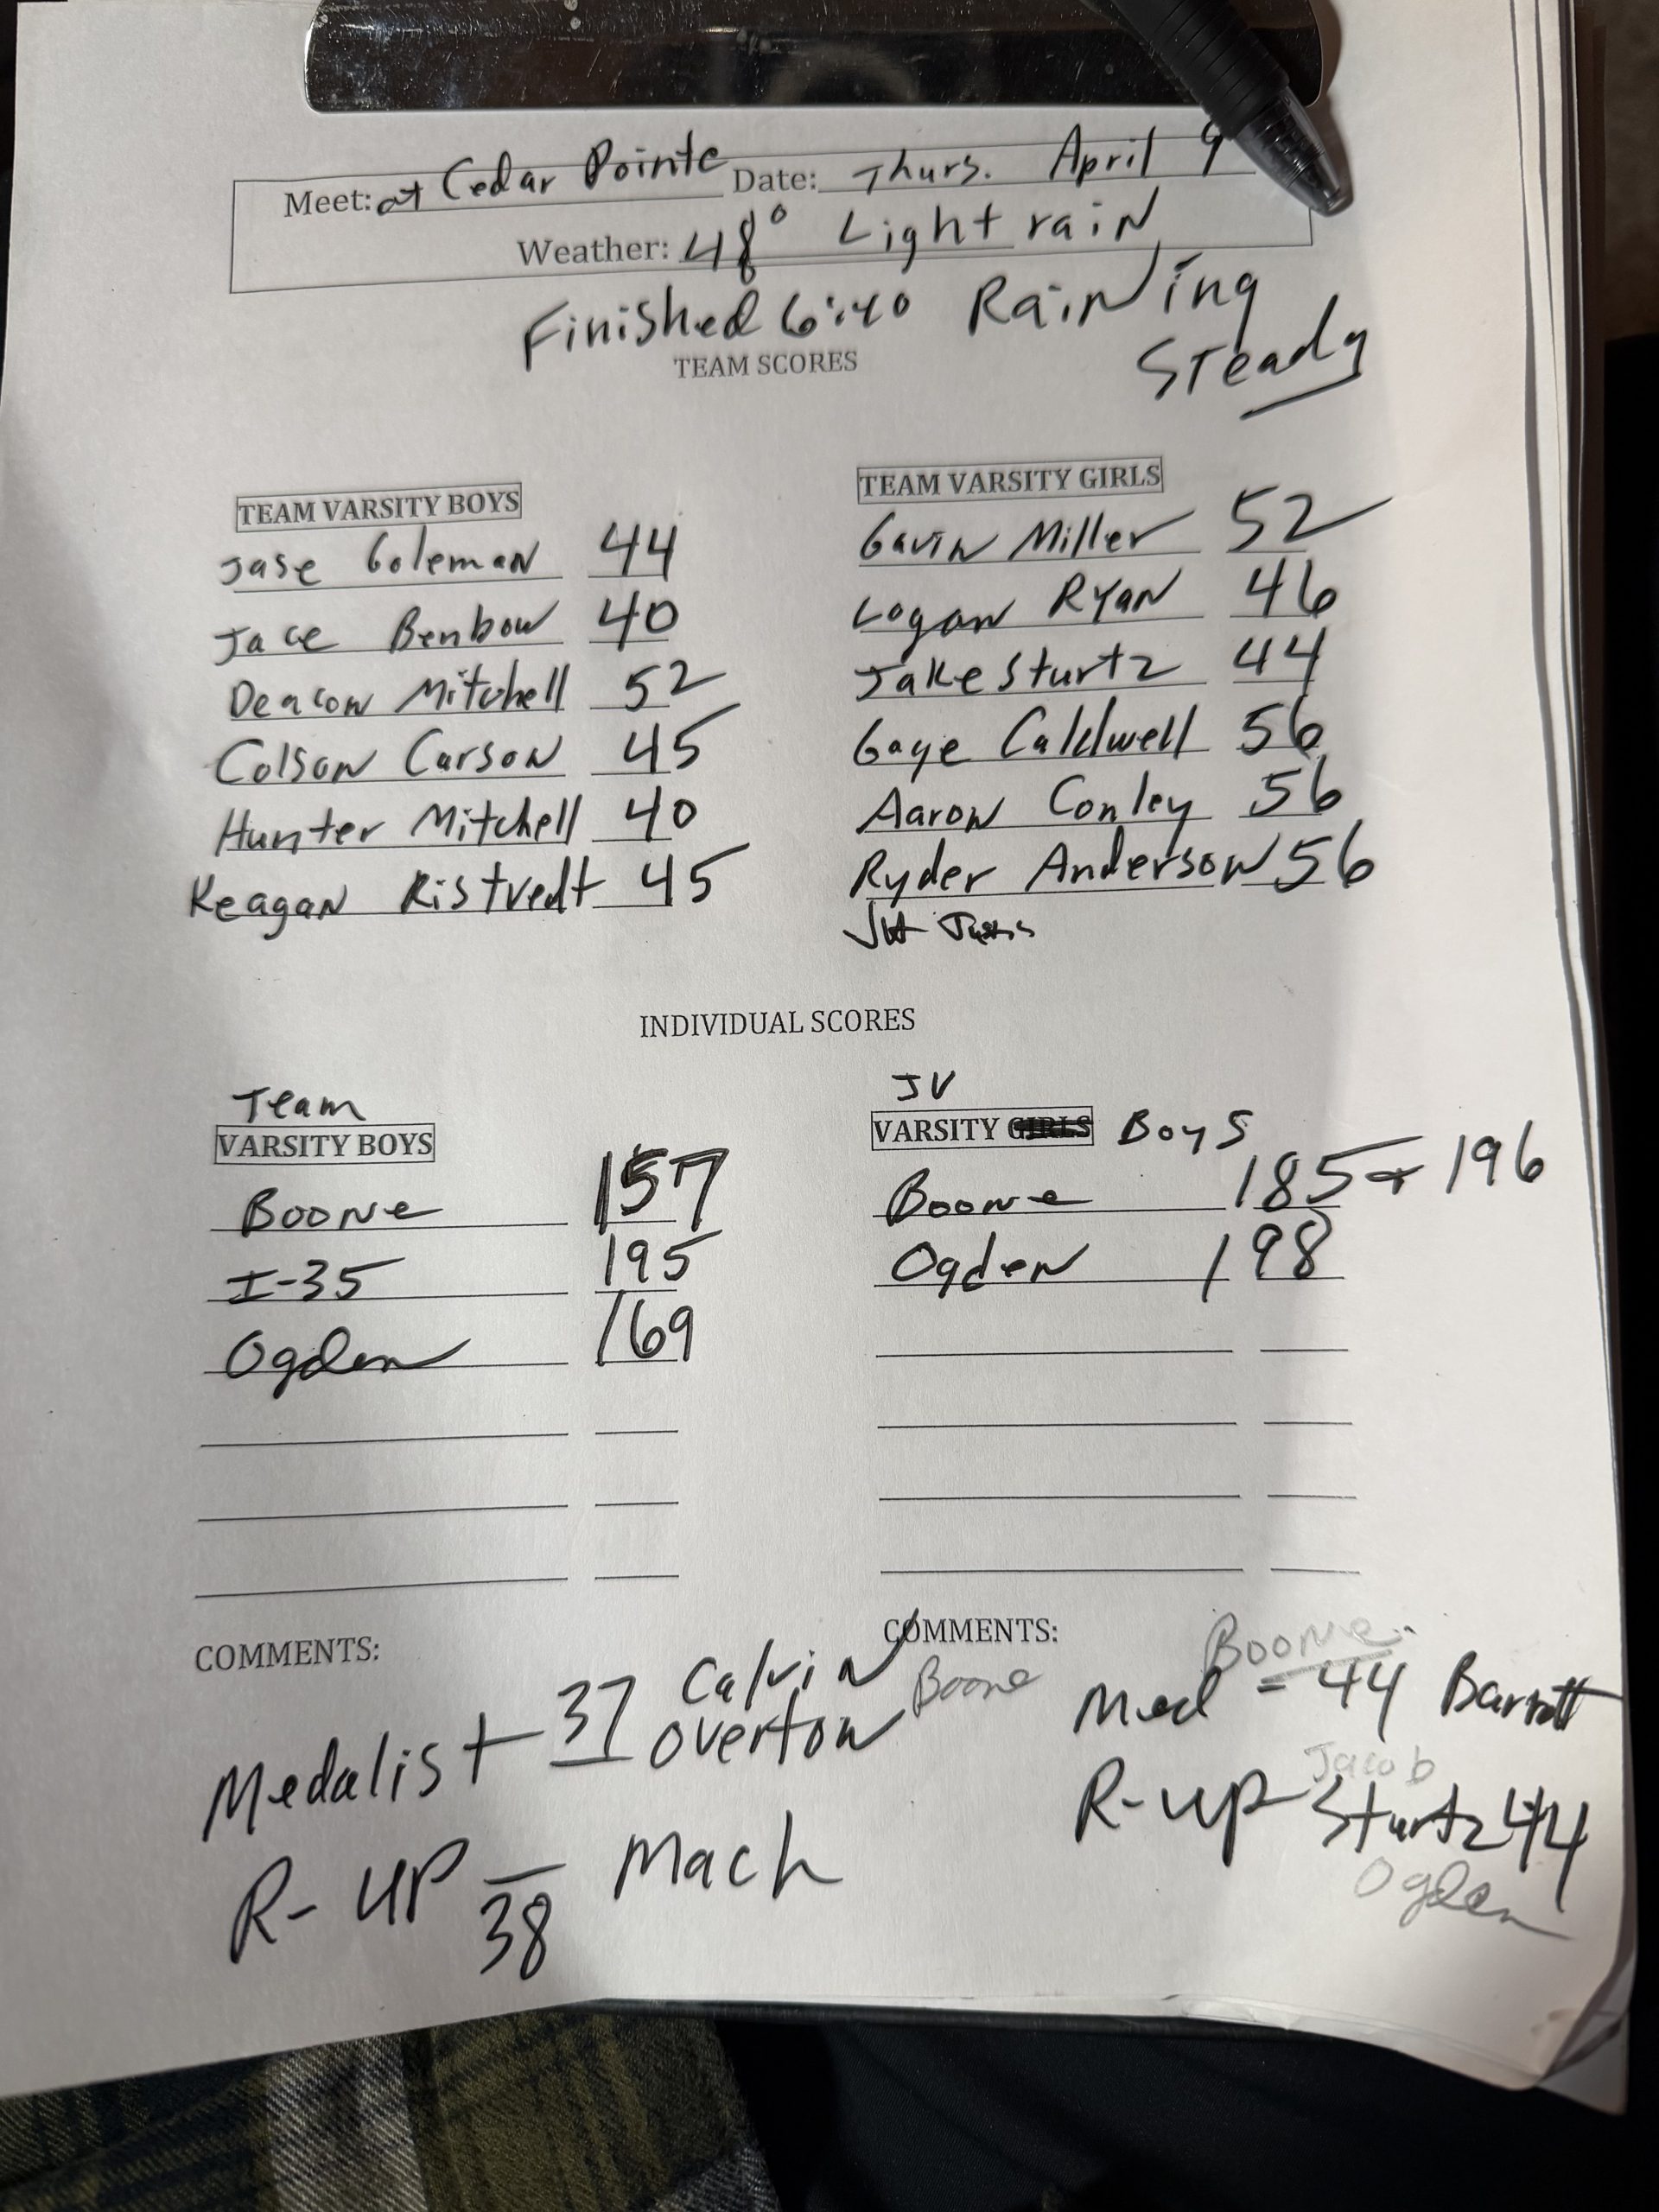 Meet: at Cedar Pointe Date: Thurs. April 9
Weather: 48° Light rain
Finished 6:40 Raining
Steady
TEAM SCORES
TEAM VARSITY BOYS
Jase Goleman 44
Jace Benbow 40
Deacon Mitchell 52
Colson Carson 45
Hunter Mitchell 40
Keagan Ristvedt 45
TEAM VARSITY GIRLS
Gavin Miller 52
Logan Ryan 46
Jake Sturtz 44
Gage Caldwell 56
Aaron Conley 56
Ryder Anderson 56
INDIVIDUAL SCORES
Team
VARSITY BOYS
Boone 157
I-35 195
Ogden 169
JV
VARSITY GIRLS Boys
Boone 185 + 196
Ogden 198
COMMENTS:
Medalist 37 Calvin Overton Boone
R-UP 38 Mach
COMMENTS:
Boone
Med = 44 Barrett
Jacob
R-up Sturtz 44
Ogden